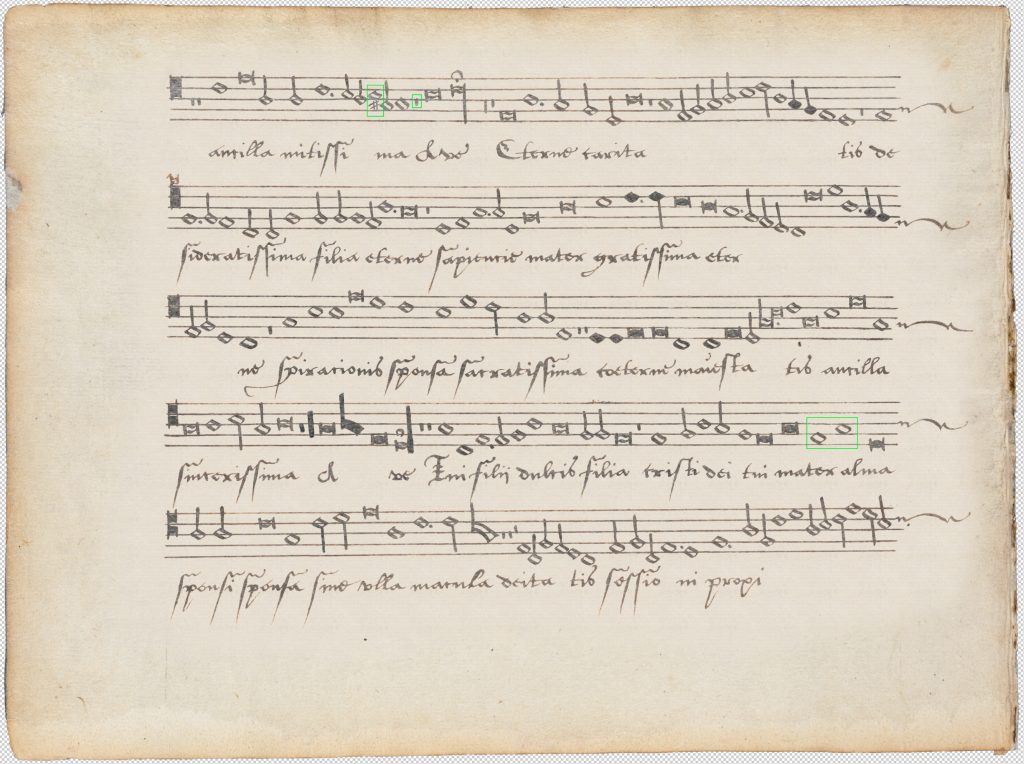 ancilla mitissi ma & ve Eterne carita tis de
sideratissima filia eterne sapiencie mater gratissima eter
ne spiracionis sponsa sacratissima coeterne maiesta tis ancilla
sincerissima & ve Tui filij dulcis filia tristi dei tui mater alma
sponsi sponsa sine vlla macula deita tis sessio ni propi